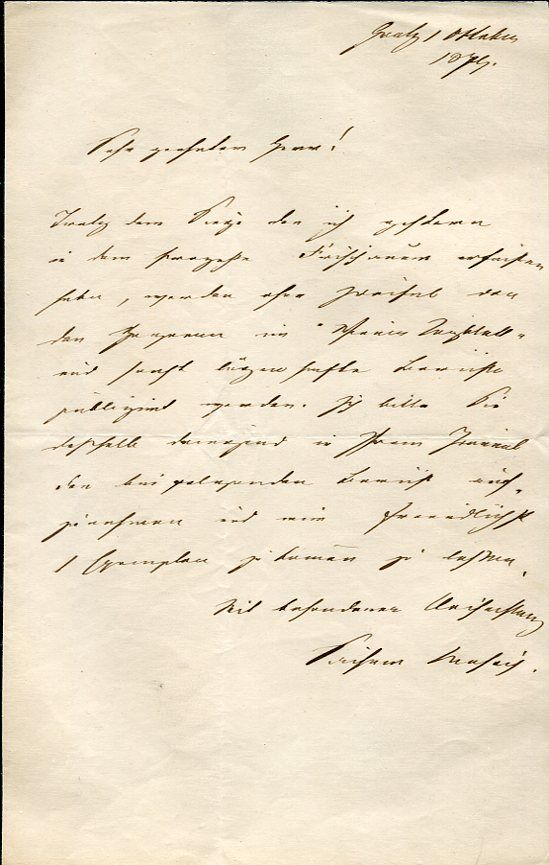 Graz 1 Oktober
1879.
Sehr geehrter Herr!
Trotz dem Siege den ich gestern
in dem Prozesse Frischauer erfochten
habe, werden ohne Zweifel von
den Gegnern im "Wiener Tagblatt"
und sonst lügenhafte Berichte
publizirt werden. Ich bitte Sie
deshalb dringend in Ihrem Journal
den beigelegenden Bericht auf-
zunehmen und mir freundlichst
1 Exemplar zukommen zu lassen.
Mit besonderer Hochachtung
Sacher Masoch.